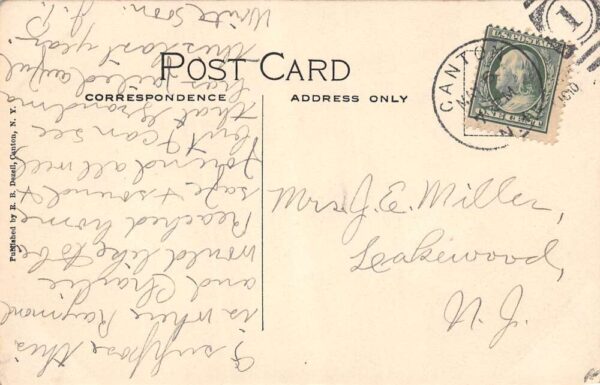 POST CARD
CORRESPONDENCE
ADDRESS ONLY
I suppose this
is where Raymond
and Charlie
would like to be
Reached home
safe & sound &
found all well
but I can see
that Grandma
has failed awful
this last year
Write soon.
Mrs. J. E. Miller,
Lakewood,
N. J.
CANTON
N.Y.
1
Dezell, Canton, N. Y.
Published by